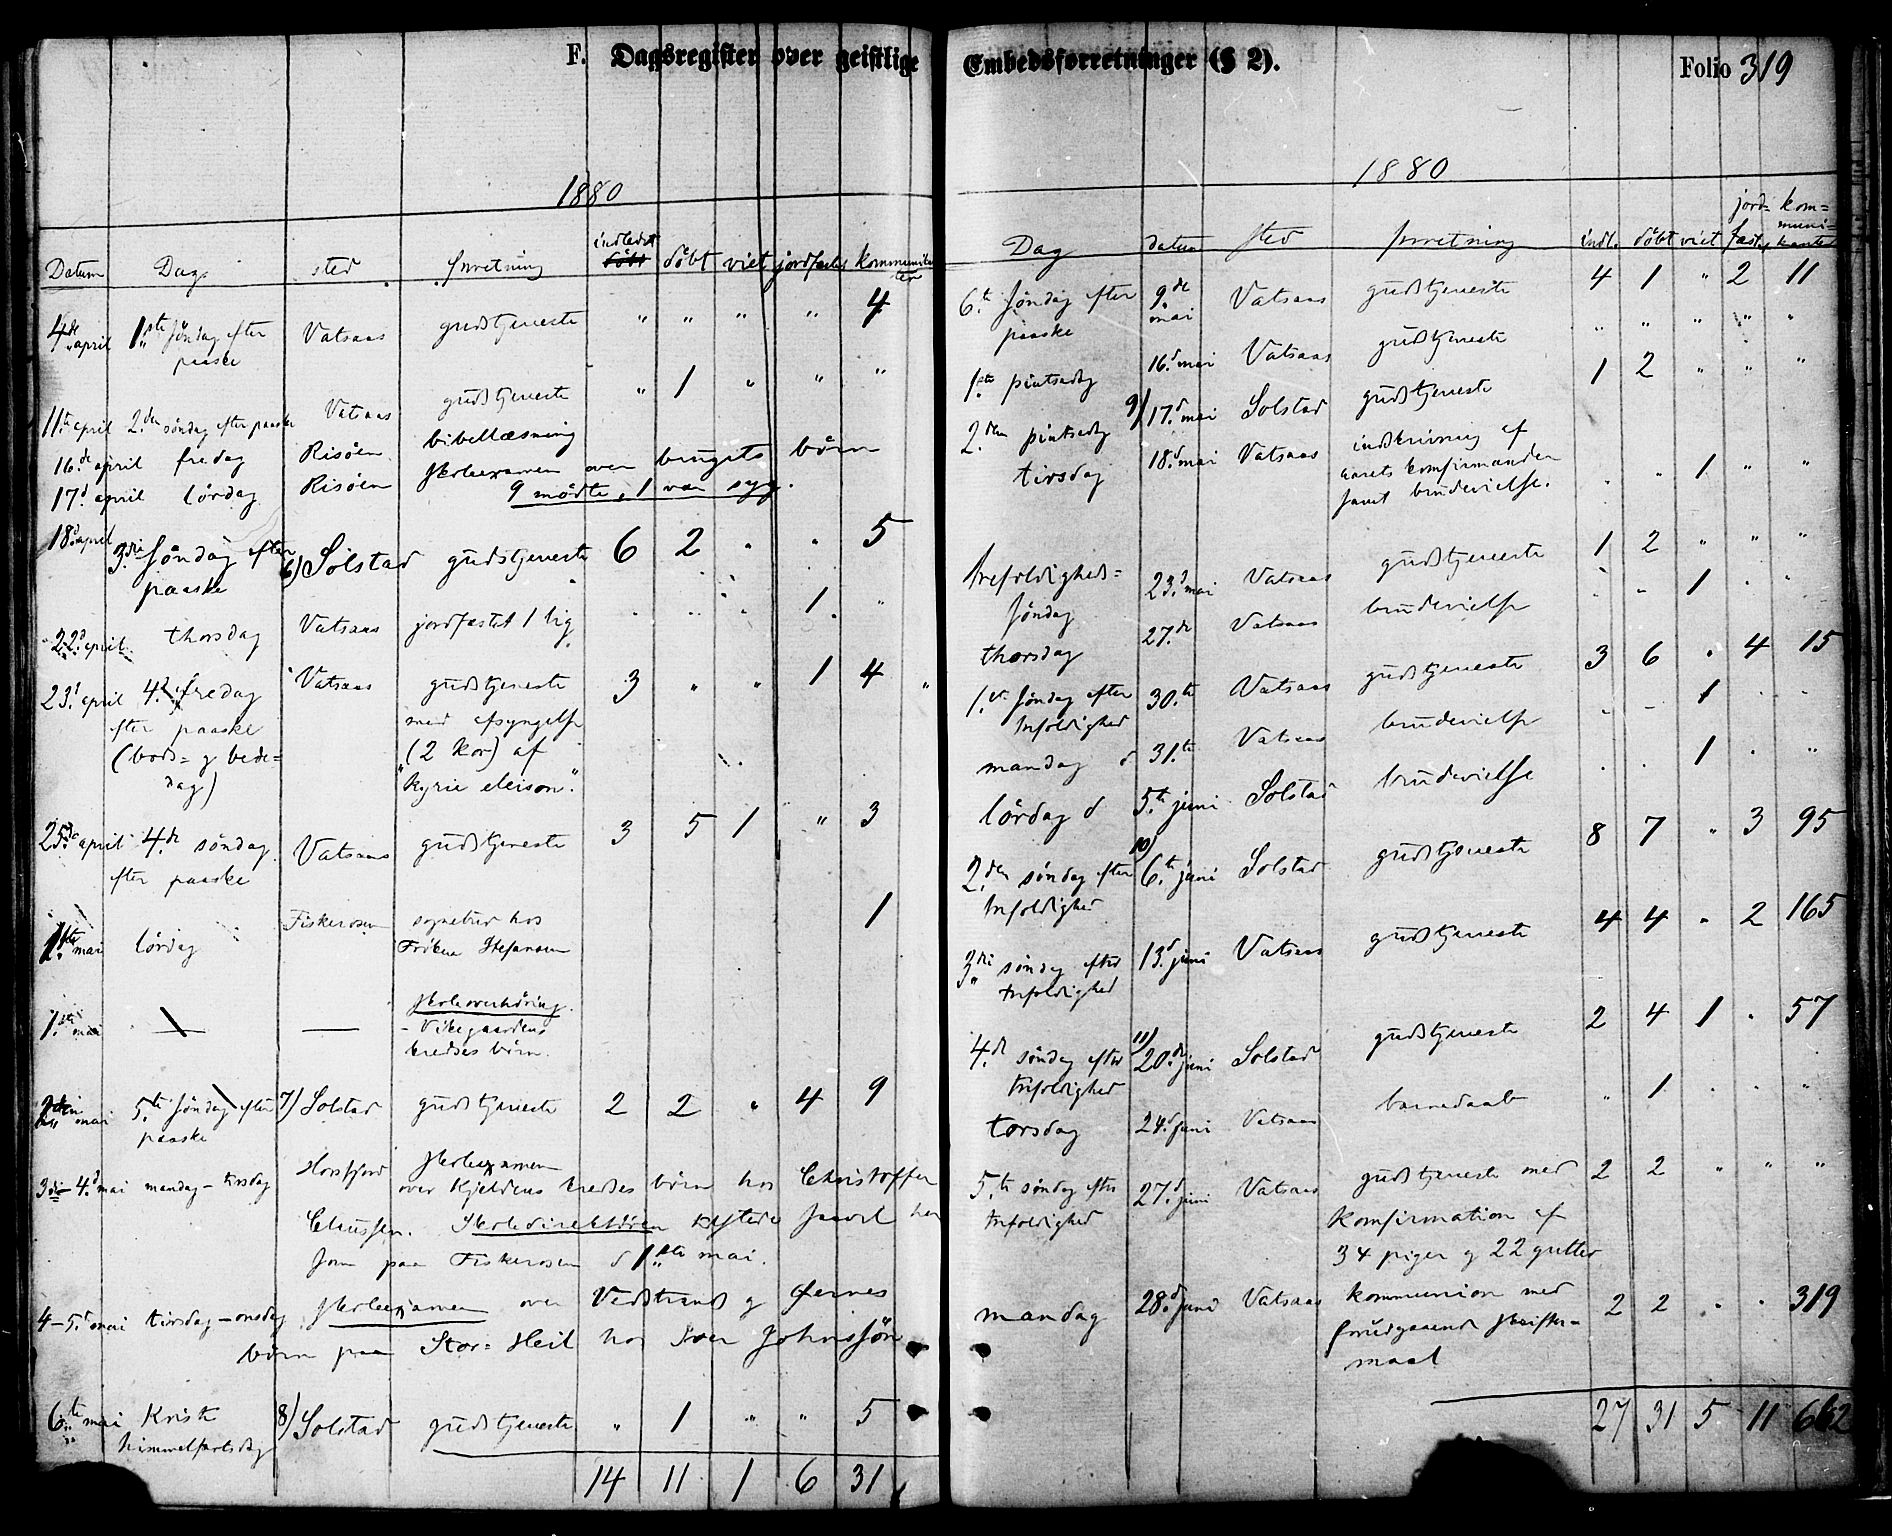 F. Dagsregister over geistlige Embedsforretninger (§ 2). Folio 319
1880
Datum Dag sted forretning indledet døbt døbt viet jordfæstet kommunikanter
4de april 1ste søndag efter Vatsaas gudstjeneste " " " " 4
paaske
11te april 2den søndag efter paaske Vatsaas gudstjeneste " 1 " " "
16de april fredag Risöen bibellæsning
17d april lördag Risöen skoleexamen over bingets börn
9 mödte, 1 var syg.
18d april 3die söndag efter 6) Solstad gudstjeneste 6 2 " " 5
paaske
22d april thorsdag Vatsaas jordfæstet 1 lig " " " 1 "
23d april 4d fredag Vatsaas gudstjeneste 3 " " 1 4 "
efter paaske med afsyngelse
(bods= g bede= (2 kor) af
dag) "kyrie eleison".
25de april 4de søndag Vatsaas gudstjeneste 3 5 1 " 3
efter paaske
1ste mai lördag Fiskerosen sognebud hos 1
Fröken Stefansen
1ste mai — — skoleoverhöring
- Vikegaardens
kredses börn.
2den mai 5te söndag efter 7) Solstad gudstjeneste 2 2 " 4 9
paaske
3die - 4d mai mandag - tirsdag Horsfjord skoleexamen
over Kjeldens kredses börn hos Christoffer
Claussen. Skoledirektören tilstede saavel her
som paa Fiskerosen d 1ste mai.
4 - 5d mai tirsdag - onsdag skoleexamen over Vedstrands g Øernes
börn paa Stor=Heil hos Iver Johnssön
6te mai Kristi 8) Solstad gudstjeneste " 1 " " 5
himmelfartsdag
14 11 1 6 31
1880
Dag datum sted forretning indl. döbt viet jord=fæstg kom=munikanter
6te söndag efter 9de mai Vatsaas gudstjeneste 4 1 " 2 11
paaske
1ste pintsedag 16d mai Vatsaas gudstjeneste " " " " "
2den pintsedag 9) 17d mai Solstad gudstjeneste 1 2 " " "
tirsdag 18d mai Vatsaas indskrivning af
aarets konfirmander
samt brudevielse. " " 1 " "
trefoldigheds= 23d mai Vatsaas gudstjeneste 1 2 " " "
söndag
thorsdag 27de Vatsaas brudevielse " " 1 " "
1st söndag efter 30te Vatsaas gudstjeneste 3 6 " 4 15
trefoldighed
mandag d 31te Vatsaas brudevielse " " 1 " "
lördag d 5te juni Solstad brudevielse " " 1 " "
2den söndag efter 10) 6te juni Solstad gudstjeneste 8 7 " 3 95
trefoldighed
3die söndag efter 13d juni Vatsaas gudstjeneste 4 4 " 2 165
trefoldighed
4de söndag efter 11) 20de juni Solstad gudstjeneste 2 4 1 " 57
trefoldighed
torsdag 24d juni Vatsaas barnedaab " 1 " " "
5te söndag efter 27d juni Vatsaas gudstjeneste med 2 2 " " "
trefoldighed konfirmation af
34 piger g 22 gutter
mandag 28d juni Vatsaas kommunion med 2 2 " " 319
forudgaaende skrifte-
maal
27 31 5 11 662